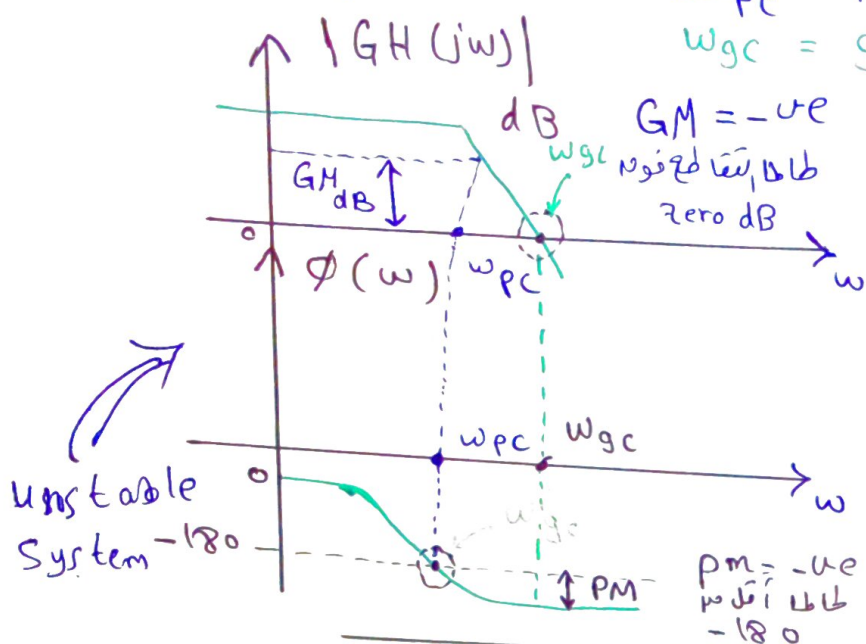 PC
wgc = g
|GH(jw)|
dB
GM = -ve
طالما التقاطع فوق
zero dB
wgc
GM dB
0
wpc
w
Ø(w)
wpc
wgc
w
0
unstable
system
-180
wgc
PM
pm = -ve
طالما أقل من
-180